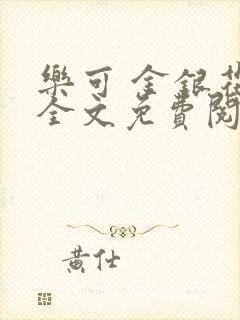 樂可 金銀花
全文免費閱
黃仕